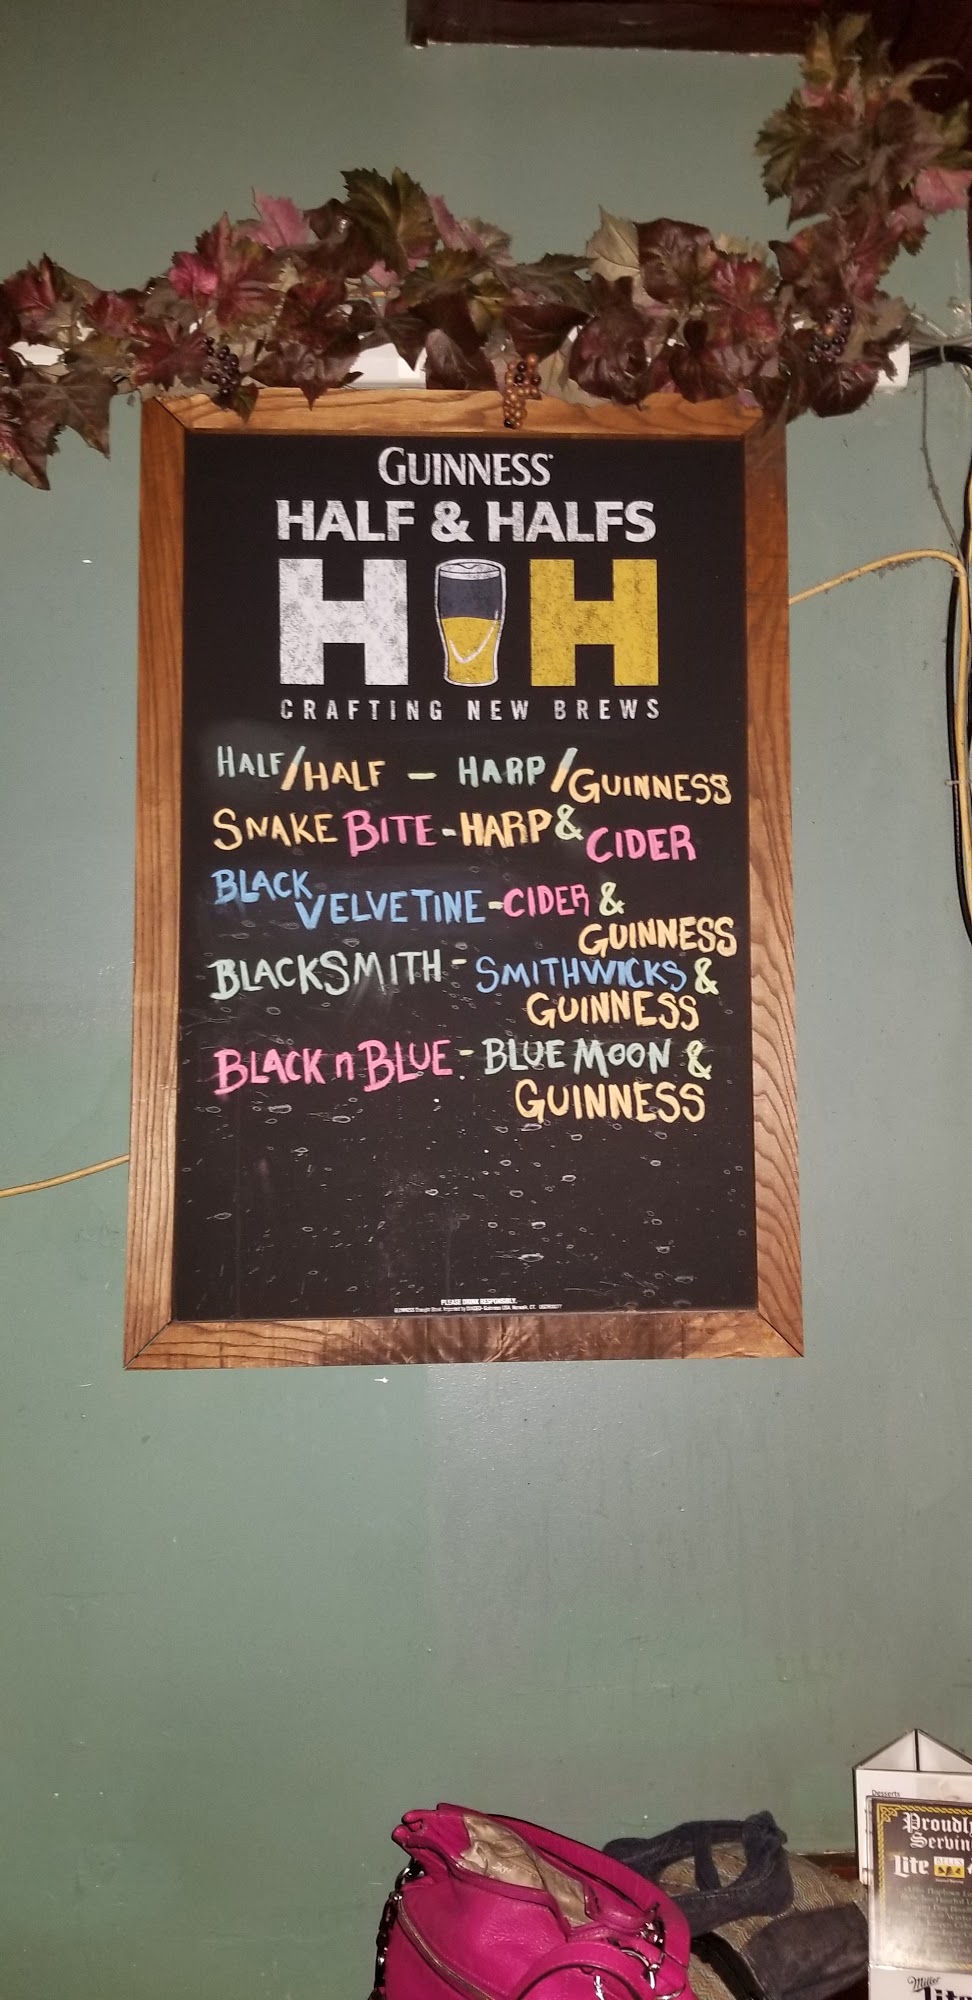 GUINNESS
HALF & HALFS
H H
CRAFTING NEW BREWS
HALF/HALF - HARP/GUINNESS
SNAKE BITE - HARP & CIDER
BLACK VELVETINE - CIDER &
GUINNESS
BLACKSMITH - SMITHWICKS &
GUINNESS
BLACK n BLUE - BLUE MOON &
GUINNESS
PLEASE DRINK RESPONSIBLY.
Desserts
Proudly
Serving
Lite
Miller
Lite